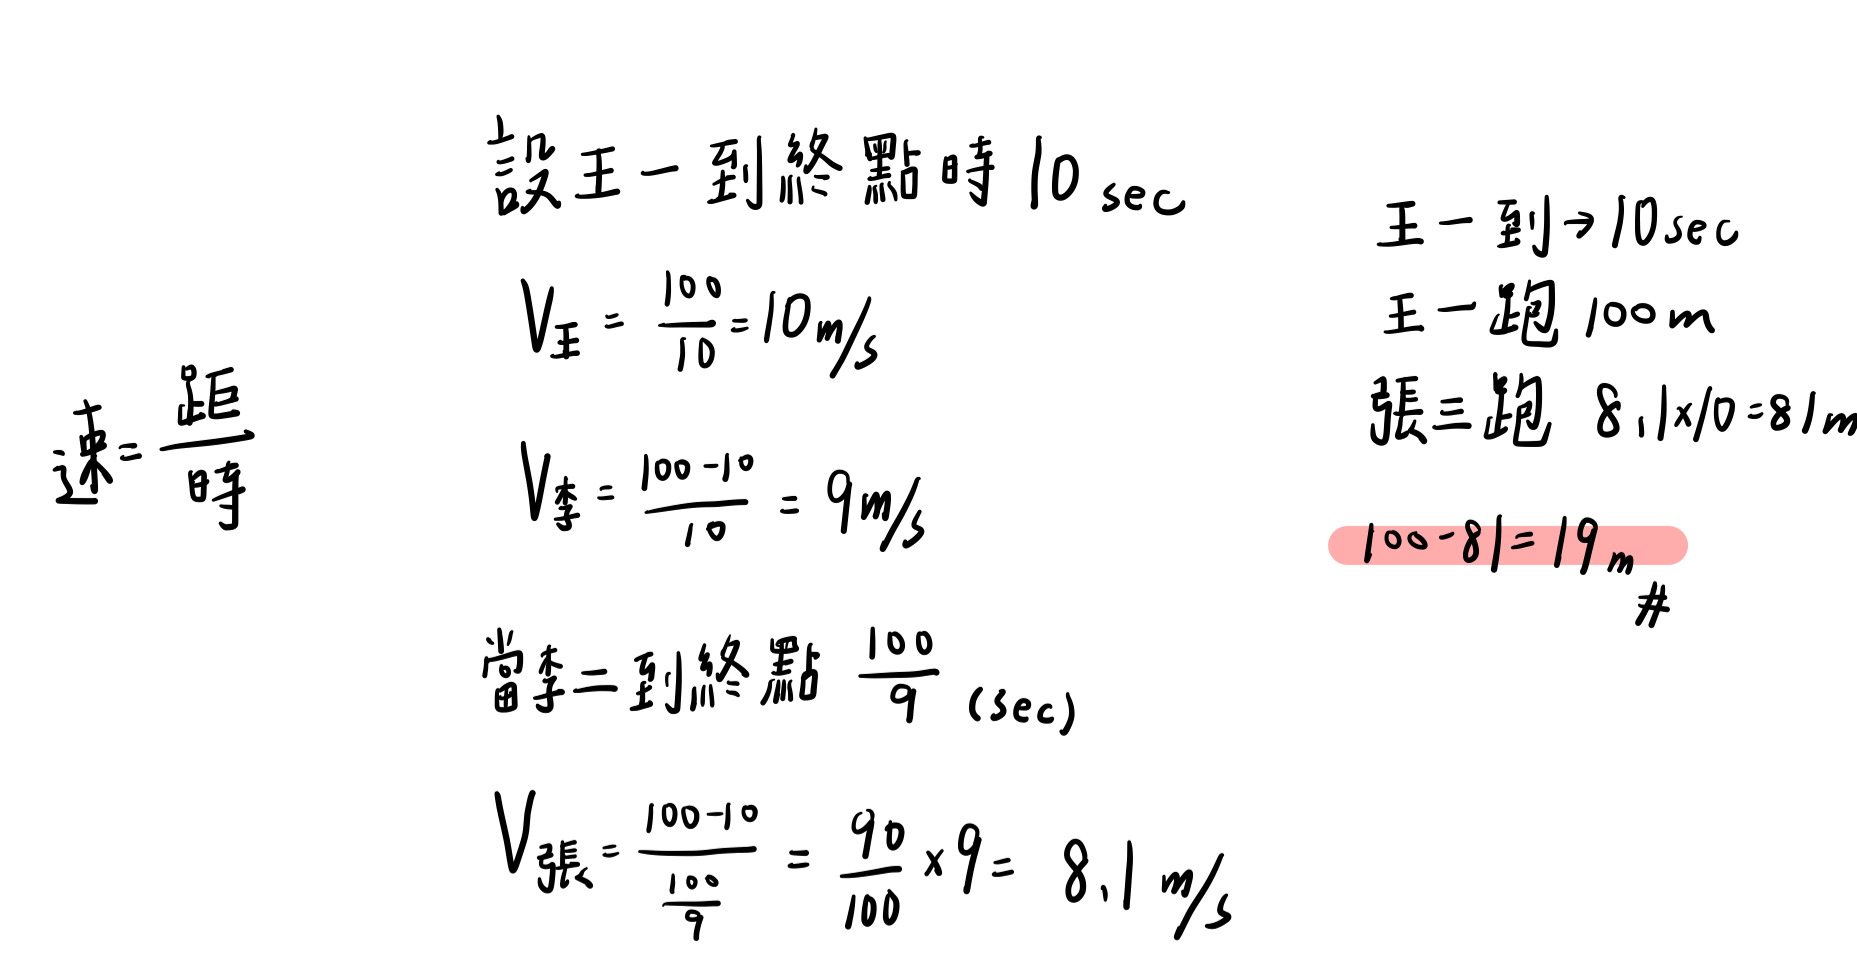 速=距/時
設王一到終點時 10 sec
V王 = 100/10 = 10 m/s
V李 = 100-10/10 = 9 m/s
當李二到終點 100/9 (sec)
V張 = 100-10/(100/9) = 90/100 × 9 = 8.1 m/s
王一到→10sec
王一跑 100m
張三跑 8.1×10=81m
100-81=19m
#